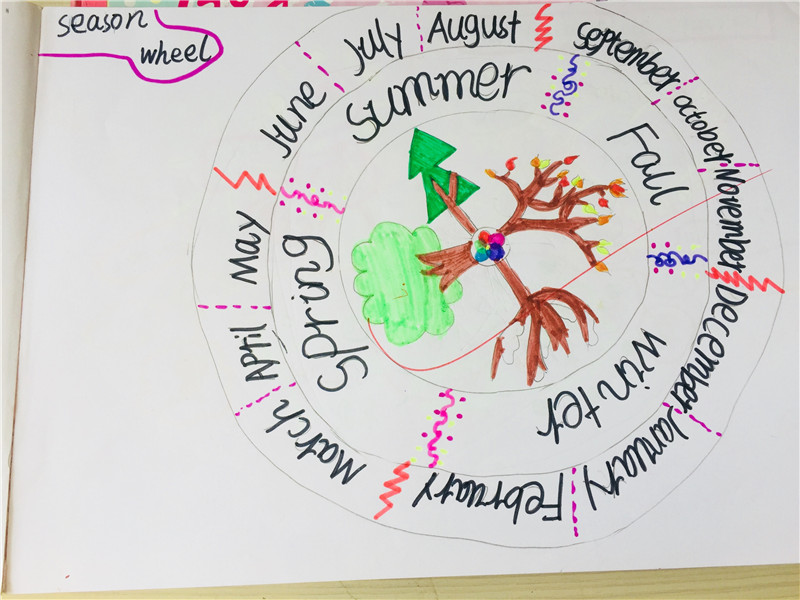 season
wheel
June
July
August
September
October
November
December
January
February
March
April
May
Summer
Fall
Winter
Spring